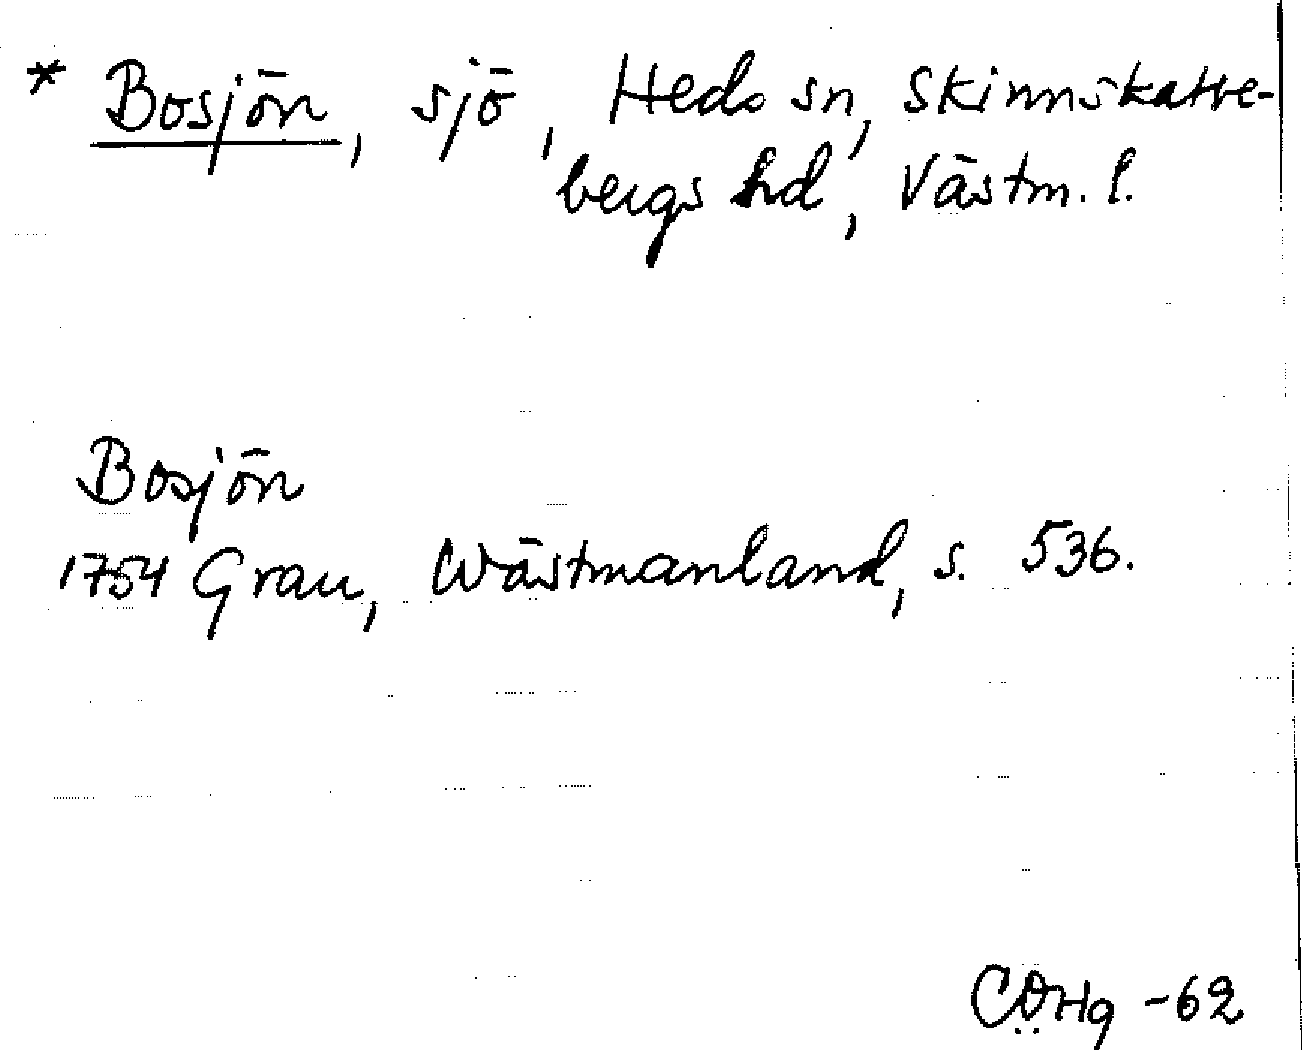 * Bosjön, sjö, Heds sn, Skinnskatte-
bergs hd, Västm. l.
Bosjön
1754 Grau, Wästmanland, s. 536.
CÖHg -62